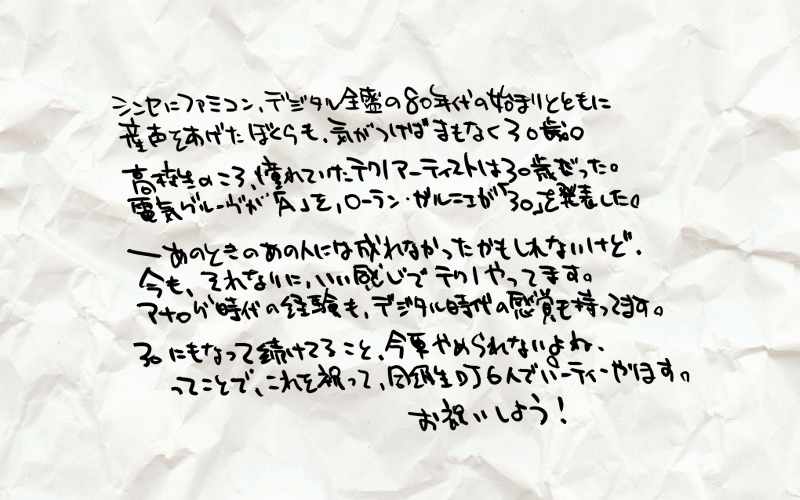 シンセにファミコン、デジタル全盛の80年代の始まりとともに
産声をあげたぼくらも、気がつけばまもなく30歳。
高校生のころ、憧れていたテクノアーティストは30歳だった。
電気グルーヴが「A」を、ローラン・ガルニエが「30」を発表した。
ーあのときのあの人には成れなかったかもしれないけど、
今も、それなりに、いい感じでテクノやってます。
アナログ時代の経験も、デジタル時代の感覚も持ってます。
30にもなって続けてること、今更やめられないよね、
ってことで、これを祝って、同級生DJ6人でパーティーやります。
お祝いしよう！